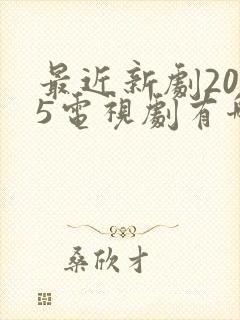 最近新劇20
5電視劇有
桑欣才